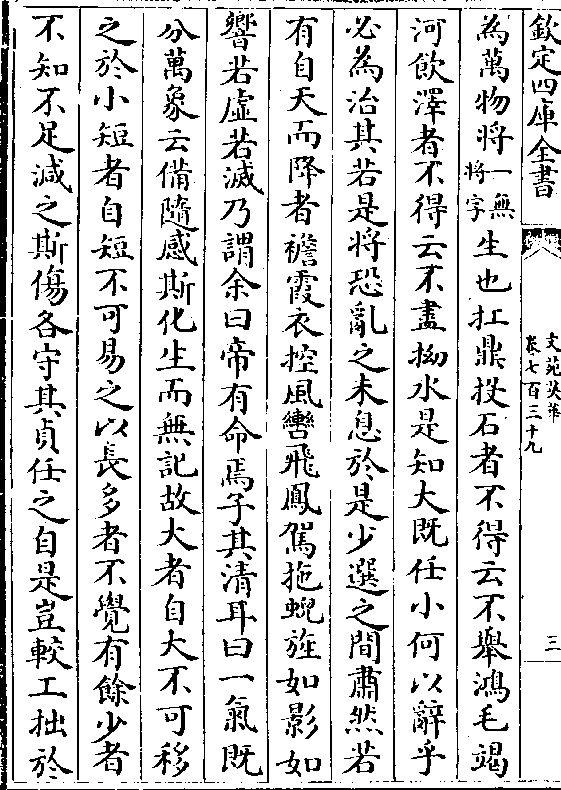 欽定四庫全書
文苑英華
卷七百三十九
三
為萬物將一無將字生也扛鼎投石者不得云不舉鴻毛竭
河飲澤者不得云不盡拗水是知大既任小何以辭乎
必為治其若是將恐亂之未息於是少選之間肅然若
有自天而降者襜霞衣控風轡飛鳳駕拖蜺旌如影如
響若虛若滅乃謂余曰帝有命焉子其清耳曰一氣既
分萬象云備隨感斯化生而無記故大者自大不可移
之於小短者自短不可易之以長多者不覺有餘少者
不知不足減之斯傷各守其貞任之自是豈較工拙於